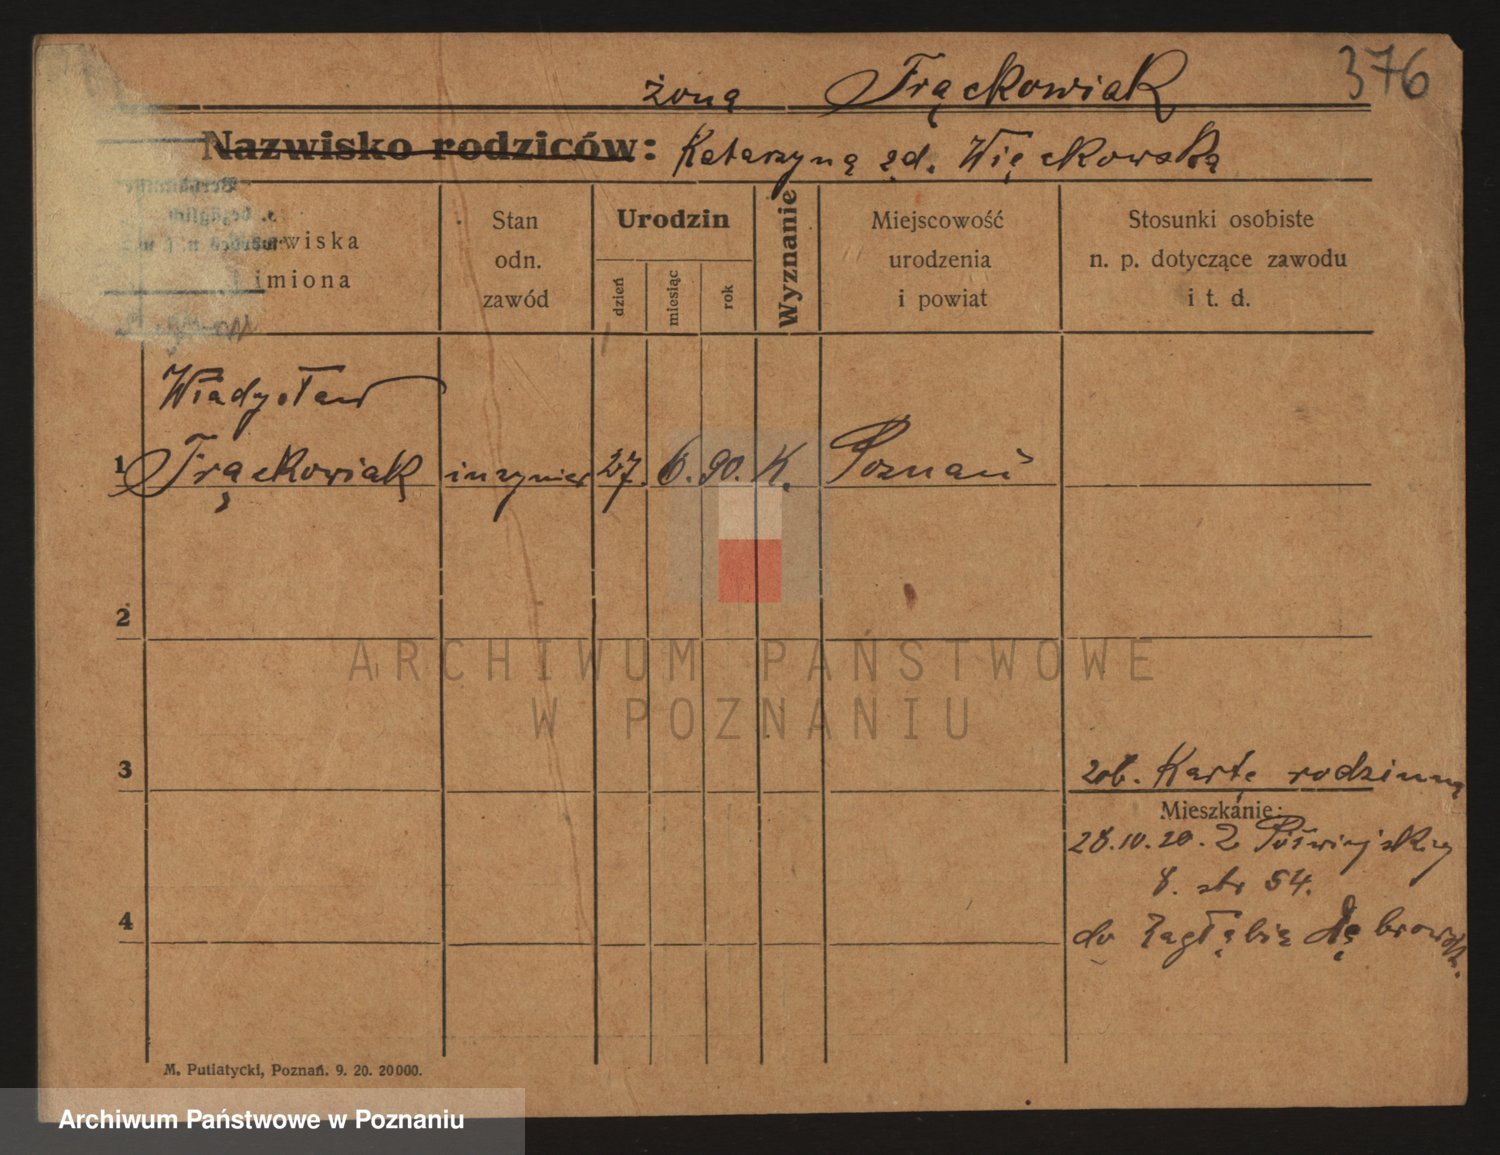 376
żoną Frąckowiak
Nazwisko rodziców: Katarzyną zd. Więckowską
wiska
imiona
Stan
odn.
zawód
Urodzin
dzień
miesiąc
rok
Wyznanie
Miejscowość
urodzenia
i powiat
Stosunki osobiste
n. p. dotyczące zawodu
i t. d.
Władysław
1 Frąckowiak inżynier 27. 6. 90. K. Poznań
2
ARCHIWUM PAŃSTWOWE
W POZNANIU
3
zob. Kartę rodzinną
Mieszkanie:
28.10.20. Z
8. str 54.
4
do Zagłębia Dąbrowsk.
M. Putiatycki, Poznań. 9. 20. 20000.
Archiwum Państwowe w Poznaniu